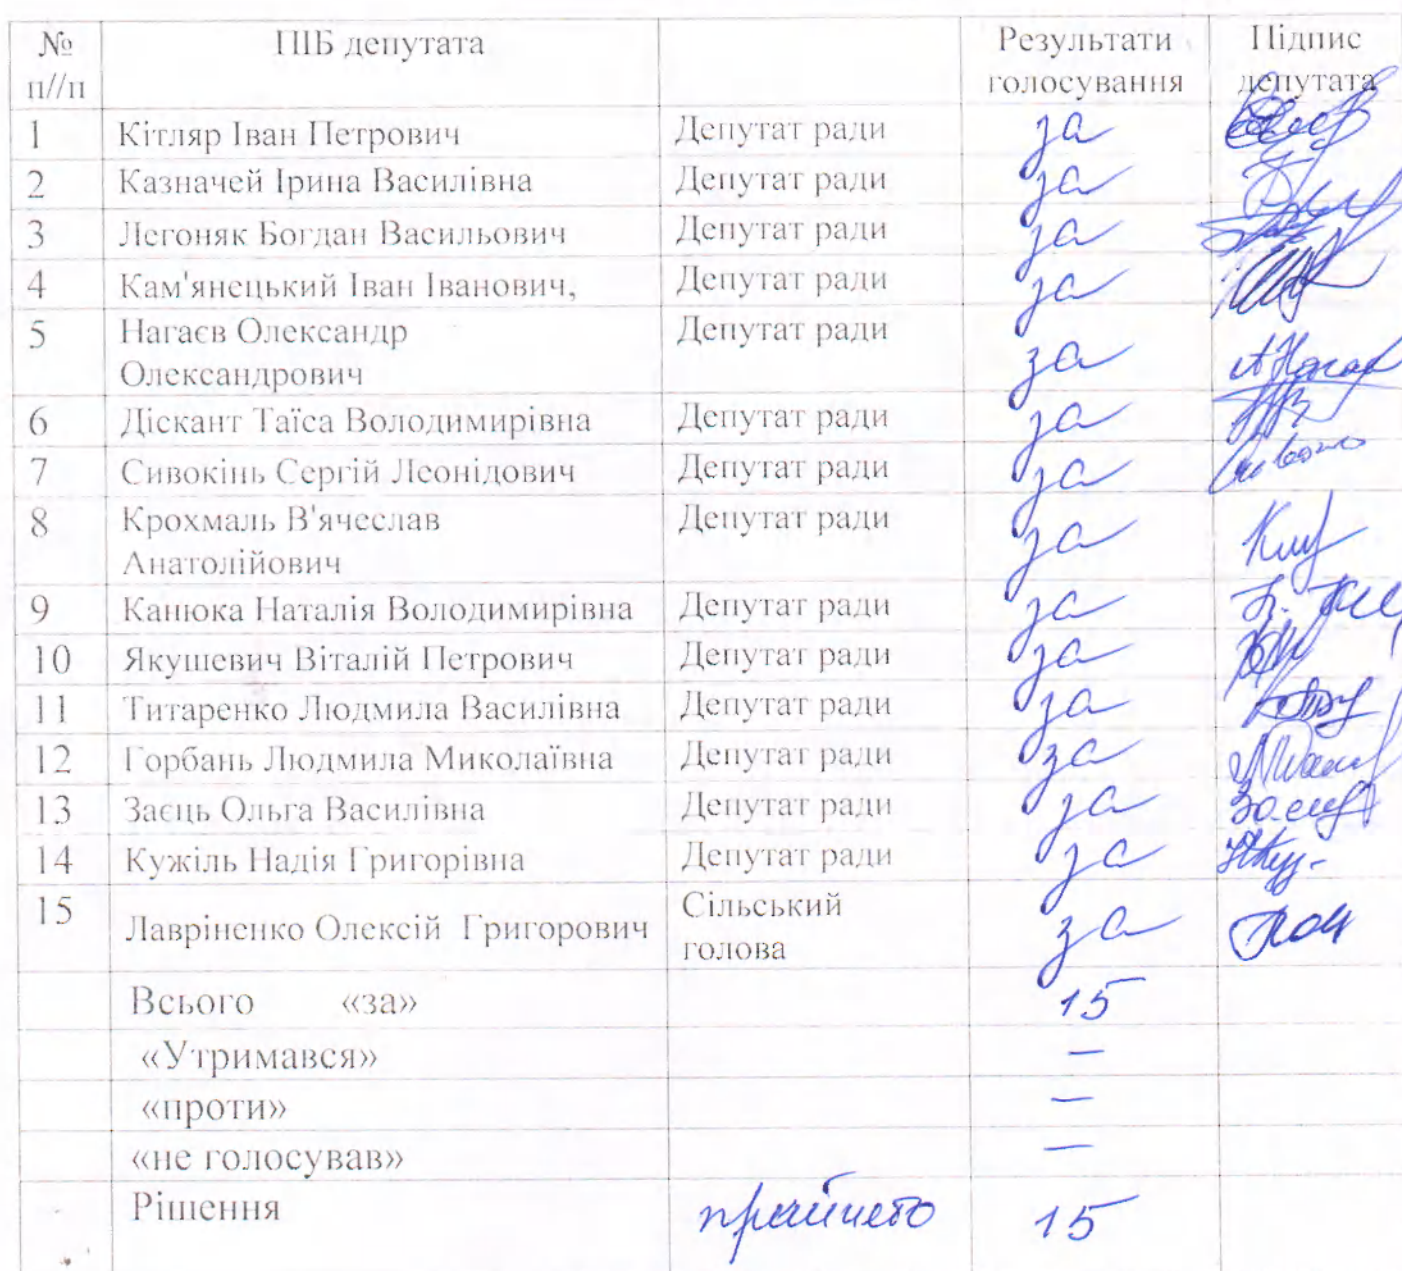 № ПІБ депутата Результати Підпис
п//п голосування депутата
1 Кітляр Іван Петрович Депутат ради за
2 Казначей Ірина Василівна Депутат ради за
3 Легоняк Богдан Васильович Депутат ради за
4 Кам'янецький Іван Іванович, Депутат ради за
5 Нагаєв Олександр Депутат ради за
Олександрович
6 Діскант Таїса Володимирівна Депутат ради за
7 Сивокінь Сергій Леонідович Депутат ради за
8 Крохмаль В'ячеслав Депутат ради за
Анатолійович
9 Канюка Наталія Володимирівна Депутат ради за
10 Якушевич Віталій Петрович Депутат ради за
11 Титаренко Людмила Василівна Депутат ради за
12 Горбань Людмила Миколаївна Депутат ради за
13 Заєць Ольга Василівна Депутат ради за
14 Кужіль Надія Григорівна Депутат ради за
15 Лавріненко Олексій Григорович Сільський за
голова
Всього «за» 15
«Утримався» –
«проти» –
«не голосував» –
Рішення прийнято 15